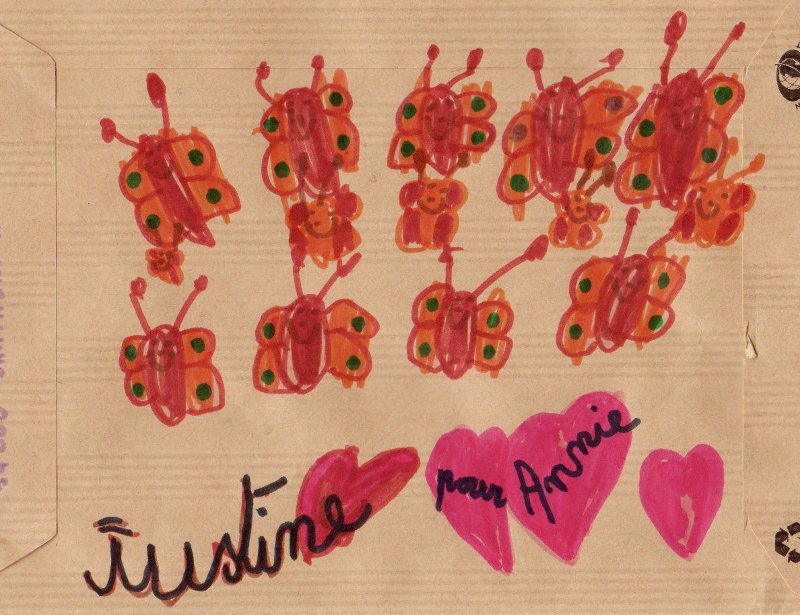 Justine pour Annie